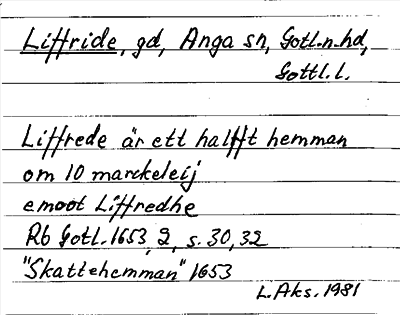 Liffride, gd, Anga sn, Gotl.n.hd,
Gottl.l.
Liffrede är ett halfft hemman
om 10 marckeleij
emoot Liffredhe
Rb Gotl. 1653, 2, s. 30, 32
"Skattehemman" 1653
L. Aks. 1981